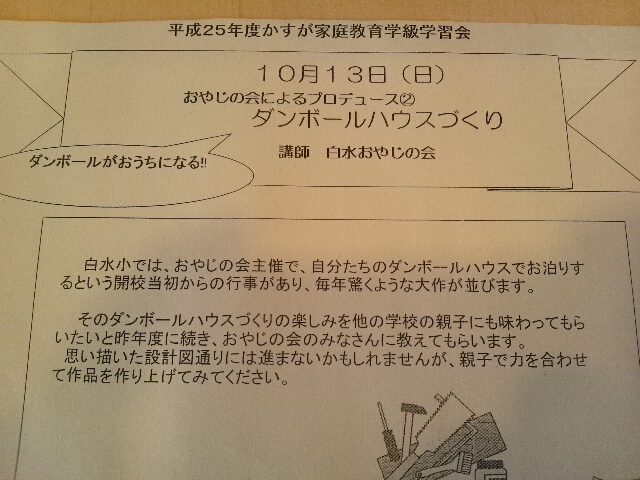 平成25年度かすが家庭教育学級学習会
10月13日(日)
おやじの会によるプロデュース②
ダンボールハウスづくり
ダンボールがおうちになる!!
講師 白水おやじの会
白水小では、おやじの会主催で、自分たちのダンボールハウスでお泊りす
るという開校当初からの行事があり、毎年驚くような大作が並びます。
そのダンボールハウスづくりの楽しみを他の学校の親子にも味わってもら
いたいと昨年度に続き、おやじの会のみなさんに教えてもらいます。
思い描いた設計図通りには進まないかもしれませんが、親子で力を合わせ
て作品を作り上げてみてください。